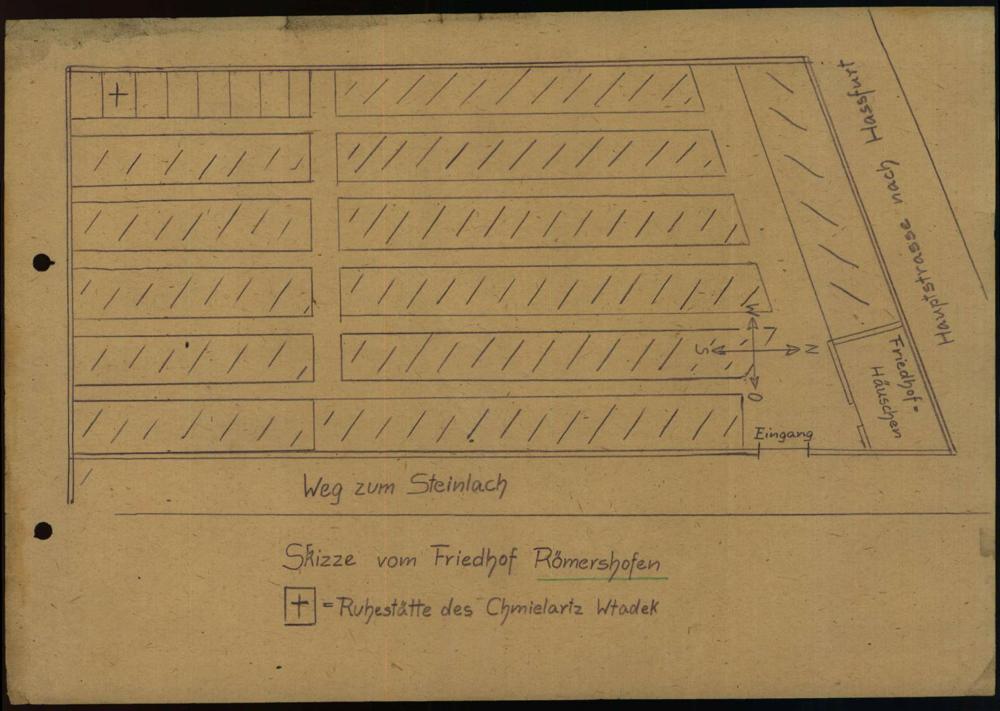 +
Hauptstrasse nach Hassfurt
W
S
N
O
Friedhof=
Häuschen
Eingang
Weg zum Steinlach
Skizze vom Friedhof Römershofen
+ = Ruhestätte des Chmielartz Wtadek